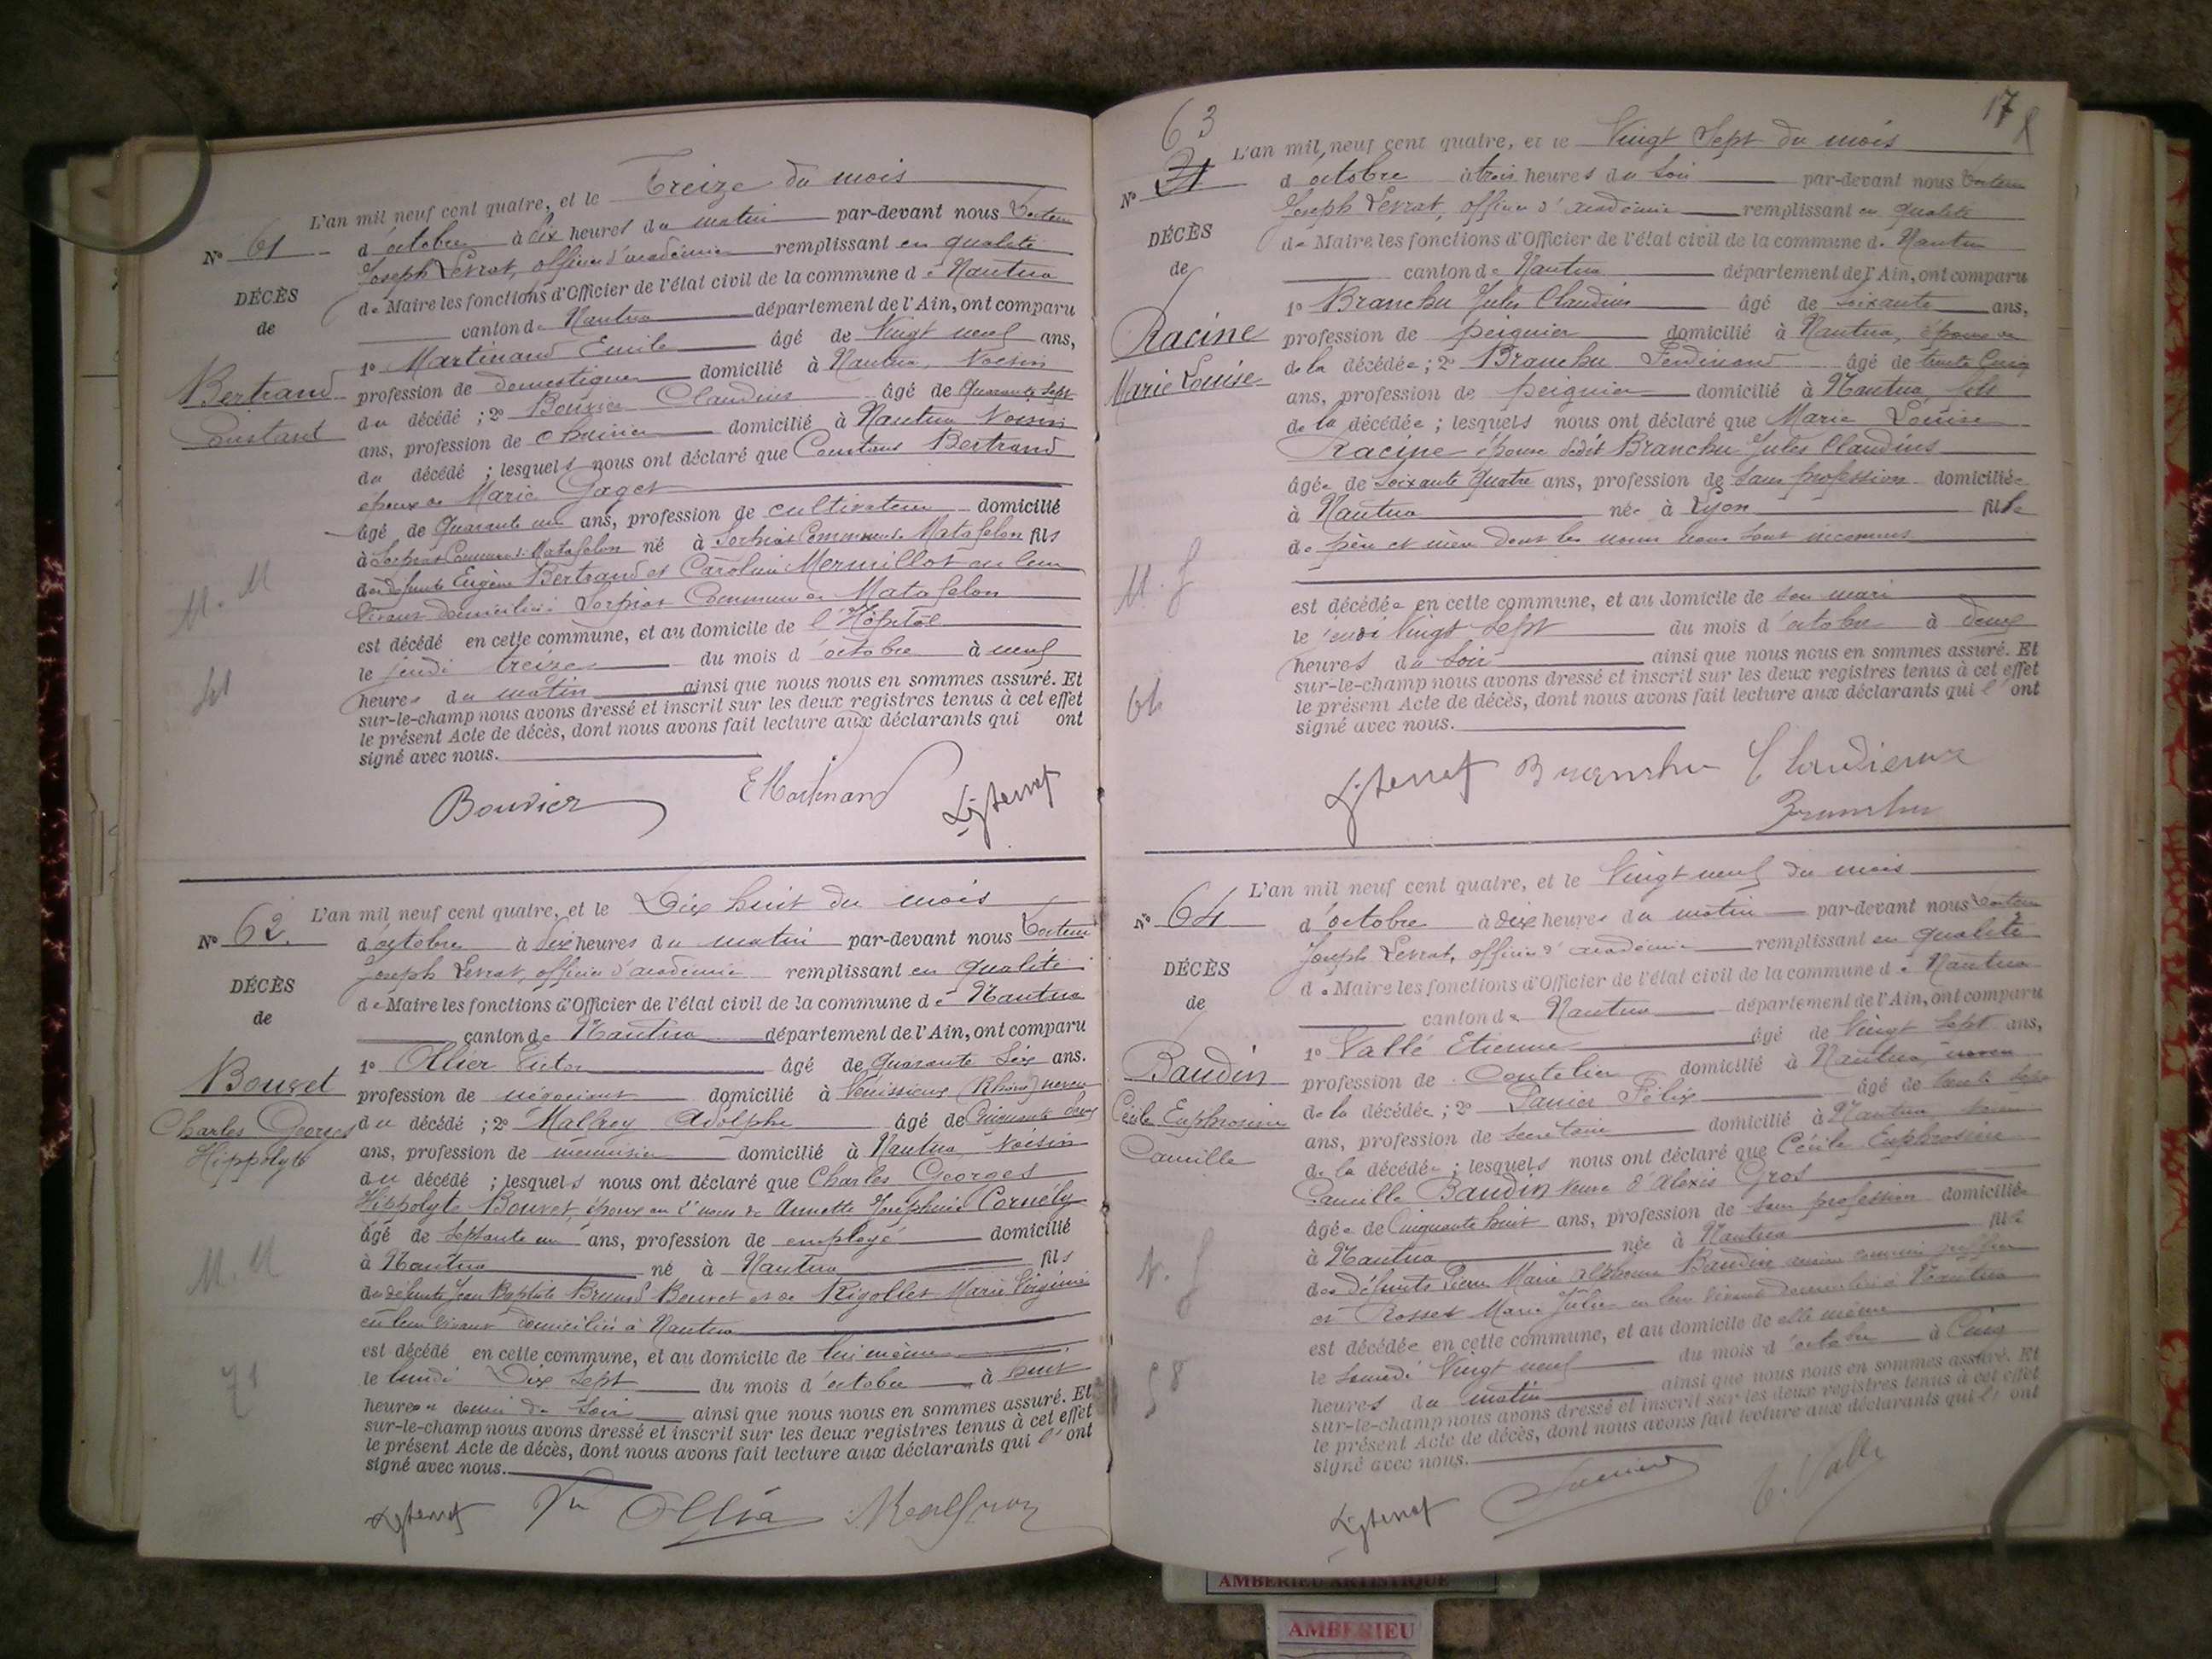 N° 61
DÉCÈS
de
Bertrand
Constant
M. M
L'an mil neuf cent quatre, et le Treize du mois
d'octobre à dix heures du matin par-devant nous Docteur
Joseph Levrat, officier d'académie remplissant en qualité
de Maire les fonctions d'Officier de l'état civil de la commune de Nantua
canton de Nantua département de l'Ain, ont comparu
1° Martinand Emile âgé de Vingt neuf ans,
profession de domestique domicilié à Nantua, Voisin
du décédé ; 2° Bouvier Claudius âgé de Quarante sept
ans, profession de domicilié à Nantua Voisin
du décédé ; lesquels nous ont déclaré que Constant Bertrand
époux de Marie Gaget
âgé de Quarante un ans, profession de cultivateur domicilié
à Commune de Matafelon né à Commune de Matafelon fils
des défunts Eugène Bertrand et Caroline Mermillot en leur
vivant domiciliés Commune de Matafelon
est décédé en cette commune, et au domicile de l'Hôpital
le jeudi treize du mois d'octobre à neuf
heures du matin ainsi que nous nous en sommes assuré. Et
sur-le-champ nous avons dressé et inscrit sur les deux registres tenus à cet effet
le présent Acte de décès, dont nous avons fait lecture aux déclarants qui ont
signé avec nous.
Bouvier E Martinand
N° 62.
DÉCÈS
de
Bouvet
Charles Georges
Hippolyte
M. M
71
L'an mil neuf cent quatre, et le Dix huit du mois
d'octobre à dix heures du matin par-devant nous Docteur
Joseph Levrat, officier d'académie remplissant en qualité
de Maire les fonctions d'Officier de l'état civil de la commune de Nantua
canton de Nantua département de l'Ain, ont comparu
1° Ollier Victor âgé de Quarante Six ans.
profession de négociant domicilié à Vénissieux (Rhône) neveu
du décédé ; 2° Malfrey Adolphe âgé de Cinquante deux
ans, profession de menuisier domicilié à Nantua Voisin
du décédé ; lesquels nous ont déclaré que Charles Georges
Hippolyte Bouvet, époux en de Annette Joséphine Cornély
âgé de Septante un ans, profession de employé domicilié
à Nantua né à Nantua fils
de défunts Jean Baptiste Bruno Bouvet et de Rigollet Marie Virginie
en leur vivant domiciliés à Nantua
est décédé en cette commune, et au domicile de lui même
le lundi Dix Sept du mois d'octobre à huit
heures et demie du Soir ainsi que nous nous en sommes assuré. Et
sur-le-champ nous avons dressé et inscrit sur les deux registres tenus à cet effet
le présent Acte de décès, dont nous avons fait lecture aux déclarants qui l'ont
signé avec nous.
63
17
N° 
DÉCÈS
de
Racine
Marie Louise
M. f
64
L'an mil neuf cent quatre, et le Vingt Sept du mois
d'octobre à trois heures du Soir par-devant nous Docteur
Joseph Levrat, officier d'académie remplissant en qualité
de Maire les fonctions d'Officier de l'état civil de la commune de Nantua
canton de Nantua département de l'Ain, ont comparu
1° Branchu Jules Claudius âgé de Soixante ans,
profession de peignier domicilié à Nantua, époux
de la décédée ; 2° Branchu Ferdinand âgé de trente Cinq
ans, profession de peignier domicilié à Nantua, fils
de la décédée ; lesquels nous ont déclaré que Marie Louise
Racine épouse dudit Branchu Jules Claudius
âgée de Soixante Quatre ans, profession de sans profession domiciliée
à Nantua née à Lyon fille
de père et mère dont les noms nous sont inconnus
est décédée en cette commune, et au domicile de son mari
le jeudi Vingt Sept du mois d'octobre à deux
heures du Soir ainsi que nous nous en sommes assuré. Et
sur-le-champ nous avons dressé et inscrit sur les deux registres tenus à cet effet
le présent Acte de décès, dont nous avons fait lecture aux déclarants qui l'ont
signé avec nous.
Branchu Claudieux
Branchu
N° 64
DÉCÈS
de
Baudin
Cécile Euphrosine
Camille
V. f
58
L'an mil neuf cent quatre, et le Vingt neuf du mois
d'octobre à dix heures du matin par-devant nous Docteur
Joseph Levrat, officier d'académie remplissant en qualité
de Maire les fonctions d'Officier de l'état civil de la commune de Nantua
canton de Nantua département de l'Ain, ont comparu
1° Vallé Etienne âgé de Vingt Sept ans,
profession de Coutelier domicilié à Nantua, neveu
de la décédée ; 2° Lanier Félix âgé de trente sept
ans, profession de Secrétaire domicilié à Nantua, Voisin
de la décédée ; lesquels nous ont déclaré que Cécile Euphrosine
Camille Baudin veuve d'Alexis Gros
âgée de Cinquante huit ans, profession de sans profession domiciliée
à Nantua née à Nantua fille
des défunts Pierre Marie Alphonse Baudin
et Rosset Marie Julie en leur vivant domiciliés à Nantua
est décédée en cette commune, et au domicile de elle même
le Samedi Vingt neuf du mois d'octobre à Cinq
heures du matin ainsi que nous nous en sommes assuré. Et
sur-le-champ nous avons dressé et inscrit sur les deux registres tenus à cet effet
le présent Acte de décès, dont nous avons fait lecture aux déclarants qui l'ont
signé avec nous.
E. Vallé
AMBERIEU ARTISTIQUE
AMBERIEU